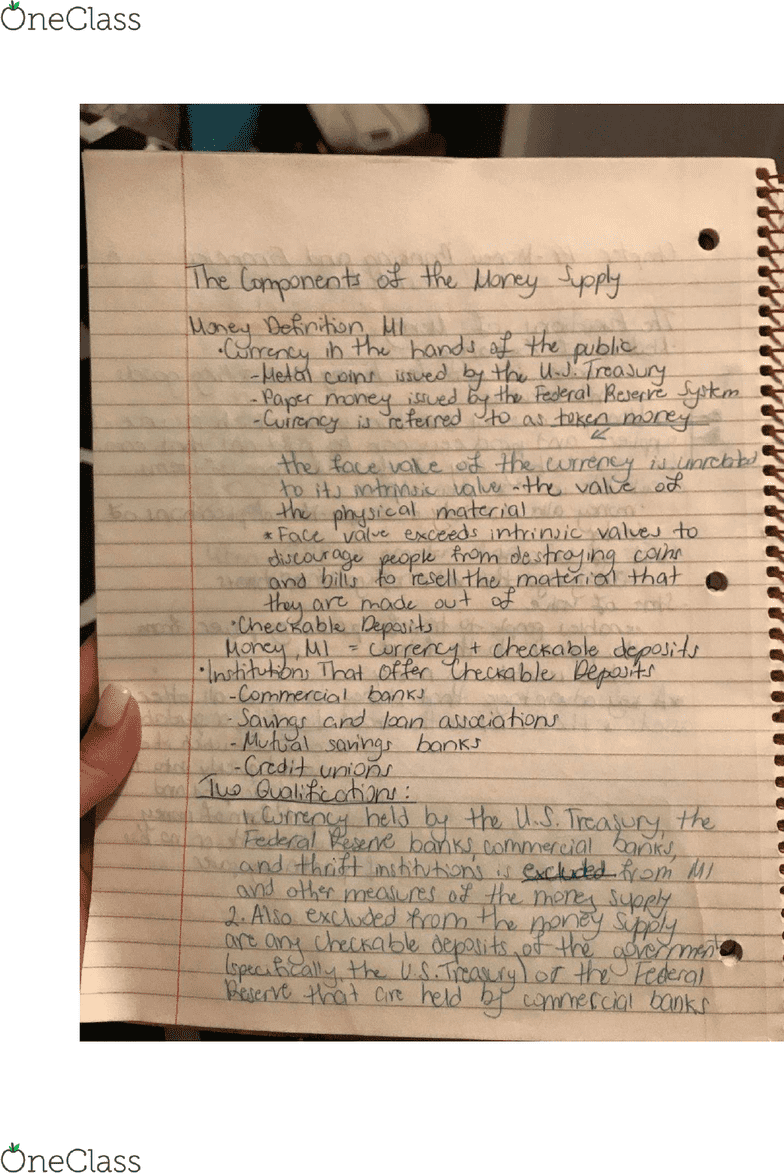 OneClass
The Components of the Money Supply
Money Definition, M1
•Currency in the hands of the public
-Metal coins issued by the U.S. Treasury
-Paper money issued by the Federal Reserve System
-Currency is referred to as token money
the face value of the currency is unrelated
to its intrinsic value - the value of
the physical material
* Face value exceeds intrinsic values to
discourage people from destroying coins
and bills to resell the material that
they are made out of
•Checkable Deposits
Money, M1 = currency + checkable deposits
•Institutions That Offer Checkable Deposits
-Commercial banks
-Savings and loan associations
-Mutual savings banks
-Credit unions
Two Qualifications:
1. Currency held by the U.S. Treasury, the
Federal Reserve banks, commercial banks,
and thrift institutions is excluded from M1
and other measures of the money supply
2. Also excluded from the money supply
are any checkable deposits of the goverment
(specifically, the U.S. Treasury) or the Federal
Reserve that are held by commercial banks
OneClass